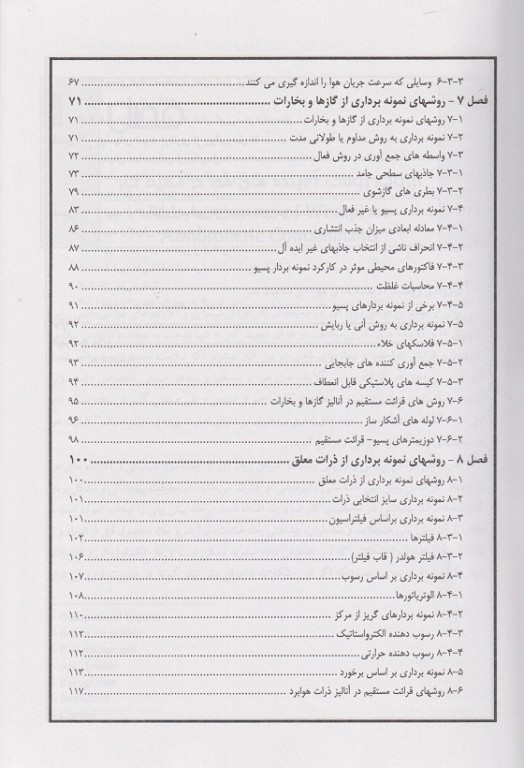 ۶-۳-۳ وسایلی که سرعت جریان هوا را اندازه گیری می کنند ..... ۶۷
فصل ۷ – روشهای نمونه برداری از گازها و بخارات ..... ۷۱
۷-۱ روشهای نمونه برداری از گازها و بخارات ..... ۷۱
۷-۲ نمونه برداری به روش مداوم یا طولانی مدت ..... ۷۱
۷-۳ واسطه های جمع آوری در روش فعال ..... ۷۲
۷-۳-۱ جاذبهای سطحی جامد ..... ۷۳
۷-۳-۲ بطری های گازشوی ..... ۷۹
۷-۴ نمونه برداری پسیو یا غیر فعال ..... ۸۳
۷-۴-۱ معادله ابعادی میزان جذب انتشاری ..... ۸۶
۷-۴-۲ انحراف ناشی از انتخاب جاذبهای غیر ایده آل ..... ۸۷
۷-۴-۳ فاکتورهای محیطی موثر در کارکرد نمونه بردار پسیو ..... ۸۸
۷-۴-۴ محاسبات غلظت ..... ۹۰
۷-۴-۵ برخی از نمونه بردارهای پسیو ..... ۹۱
۷-۵ نمونه برداری به روش آنی یا ربایش ..... ۹۲
۷-۵-۱ فلاسکهای خلاء ..... ۹۲
۷-۵-۲ جمع آوری کننده های جابجایی ..... ۹۳
۷-۵-۳ کیسه های پلاستیکی قابل انعطاف ..... ۹۴
۷-۶ روش های قرائت مستقیم در آنالیز گازها و بخارات ..... ۹۵
۷-۶-۱ لوله های آشکار ساز ..... ۹۶
۷-۶-۲ دوزیمترهای پسیو- قرائت مستقیم ..... ۹۸
فصل ۸ – روشهای نمونه برداری از ذرات معلق ..... ۱۰۰
۸-۱ روشهای نمونه برداری از ذرات معلق ..... ۱۰۰
۸-۲ نمونه برداری سایز انتخابی ذرات ..... ۱۰۱
۸-۳ نمونه برداری براساس فیلتراسیون ..... ۱۰۱
۸-۳-۱ فیلترها ..... ۱۰۲
۸-۳-۲ فیلتر هولدر ( قاب فیلتر) ..... ۱۰۶
۸-۴ نمونه برداری بر اساس رسوب ..... ۱۰۷
۸-۴-۱ الوتریاتورها ..... ۱۰۸
۸-۴-۲ نمونه بردارهای گریز از مرکز ..... ۱۱۰
۸-۴-۳ رسوب دهنده الکترواستاتیک ..... ۱۱۲
۸-۴-۴ رسوب دهنده حرارتی ..... ۱۱۲
۸-۵ نمونه برداری بر اساس برخورد ..... ۱۱۳
۸-۶ روشهای قرائت مستقیم در آنالیز ذرات هوابرد ..... ۱۱۷